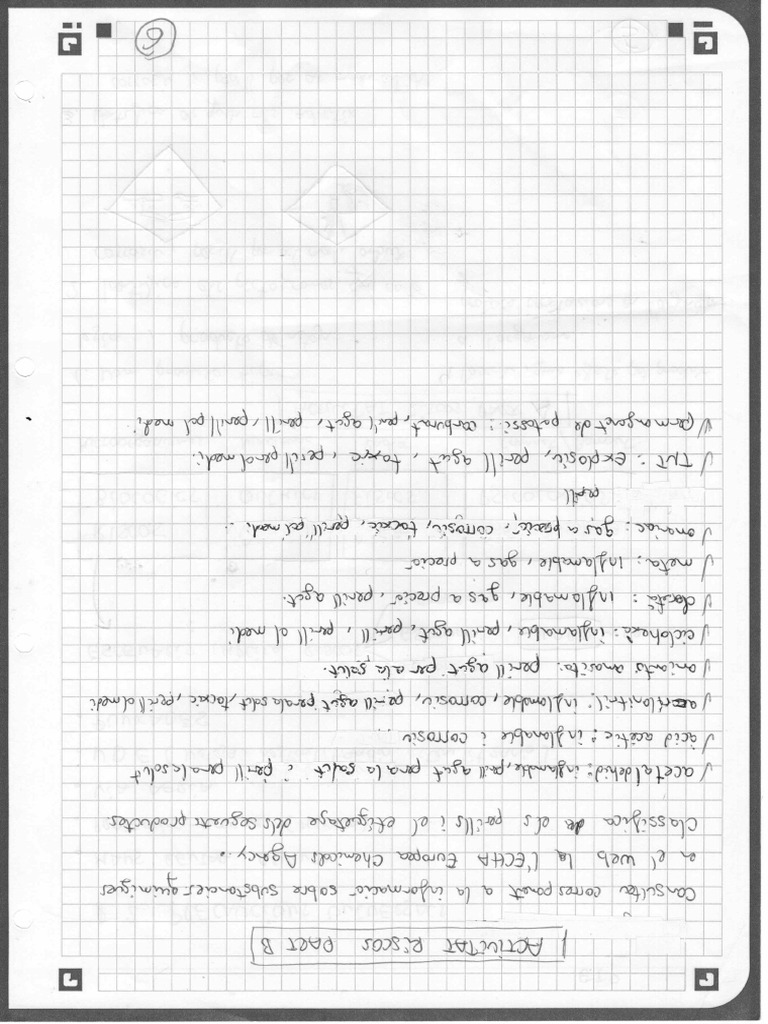 ACTIVITAT RISCOS PART B
Consulta corresponent a la informació sobre substancies químiques
en el web de la l'ECHA Europea Chemicals Agency.
Classifica de els perills i el etiquetage dels següent productes
√ acetaldehid: inflamable, perill agut per a la salut i perill per a la salut
√ àcid acètic: inflamable i corrosiu ...
√ acrilonitril: inflamable, corrosiu, perill agut per a la salut, tòxic, perill al medi
√ amiants amosita: perill agut per a la salut.
√ ciclohexà: inflamable, perill agut, perill, perill al medi
√ inflamable, gas a preció, perill agut.
√ metà: inflamable, gas a preció
√ amoniac: gas a preció, corrosiu, tòxic, perill pel medi...
perill
√ TNT: explosiu, perill agut, tòxic, perill per al medi.
√ permanganat de potassi: carburant, perill agut, perill, perill pel medi.
6